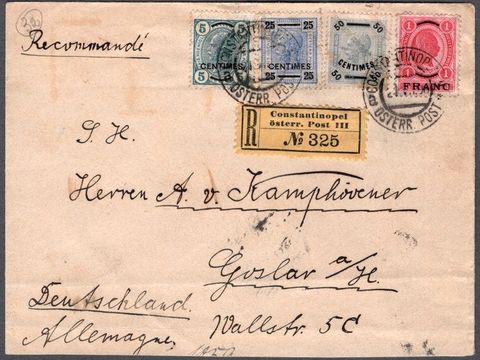 Recommandé
5 5 25 25 50 50 1 1
CENTIMES CENTIMES CENTIMES FRANC
5 5 25 25 50 50 1 1
CONSTANTINOPEL
ÖSTERR. POST
CONSTANTINOPEL
ÖSTERR. POST
R
Constantinopel
österr. Post III
№ 325
S. H.
Herren A. v. Kamphövener
Goslar a/H.
Deutschland.
Wallstr. 5C
Allemagne